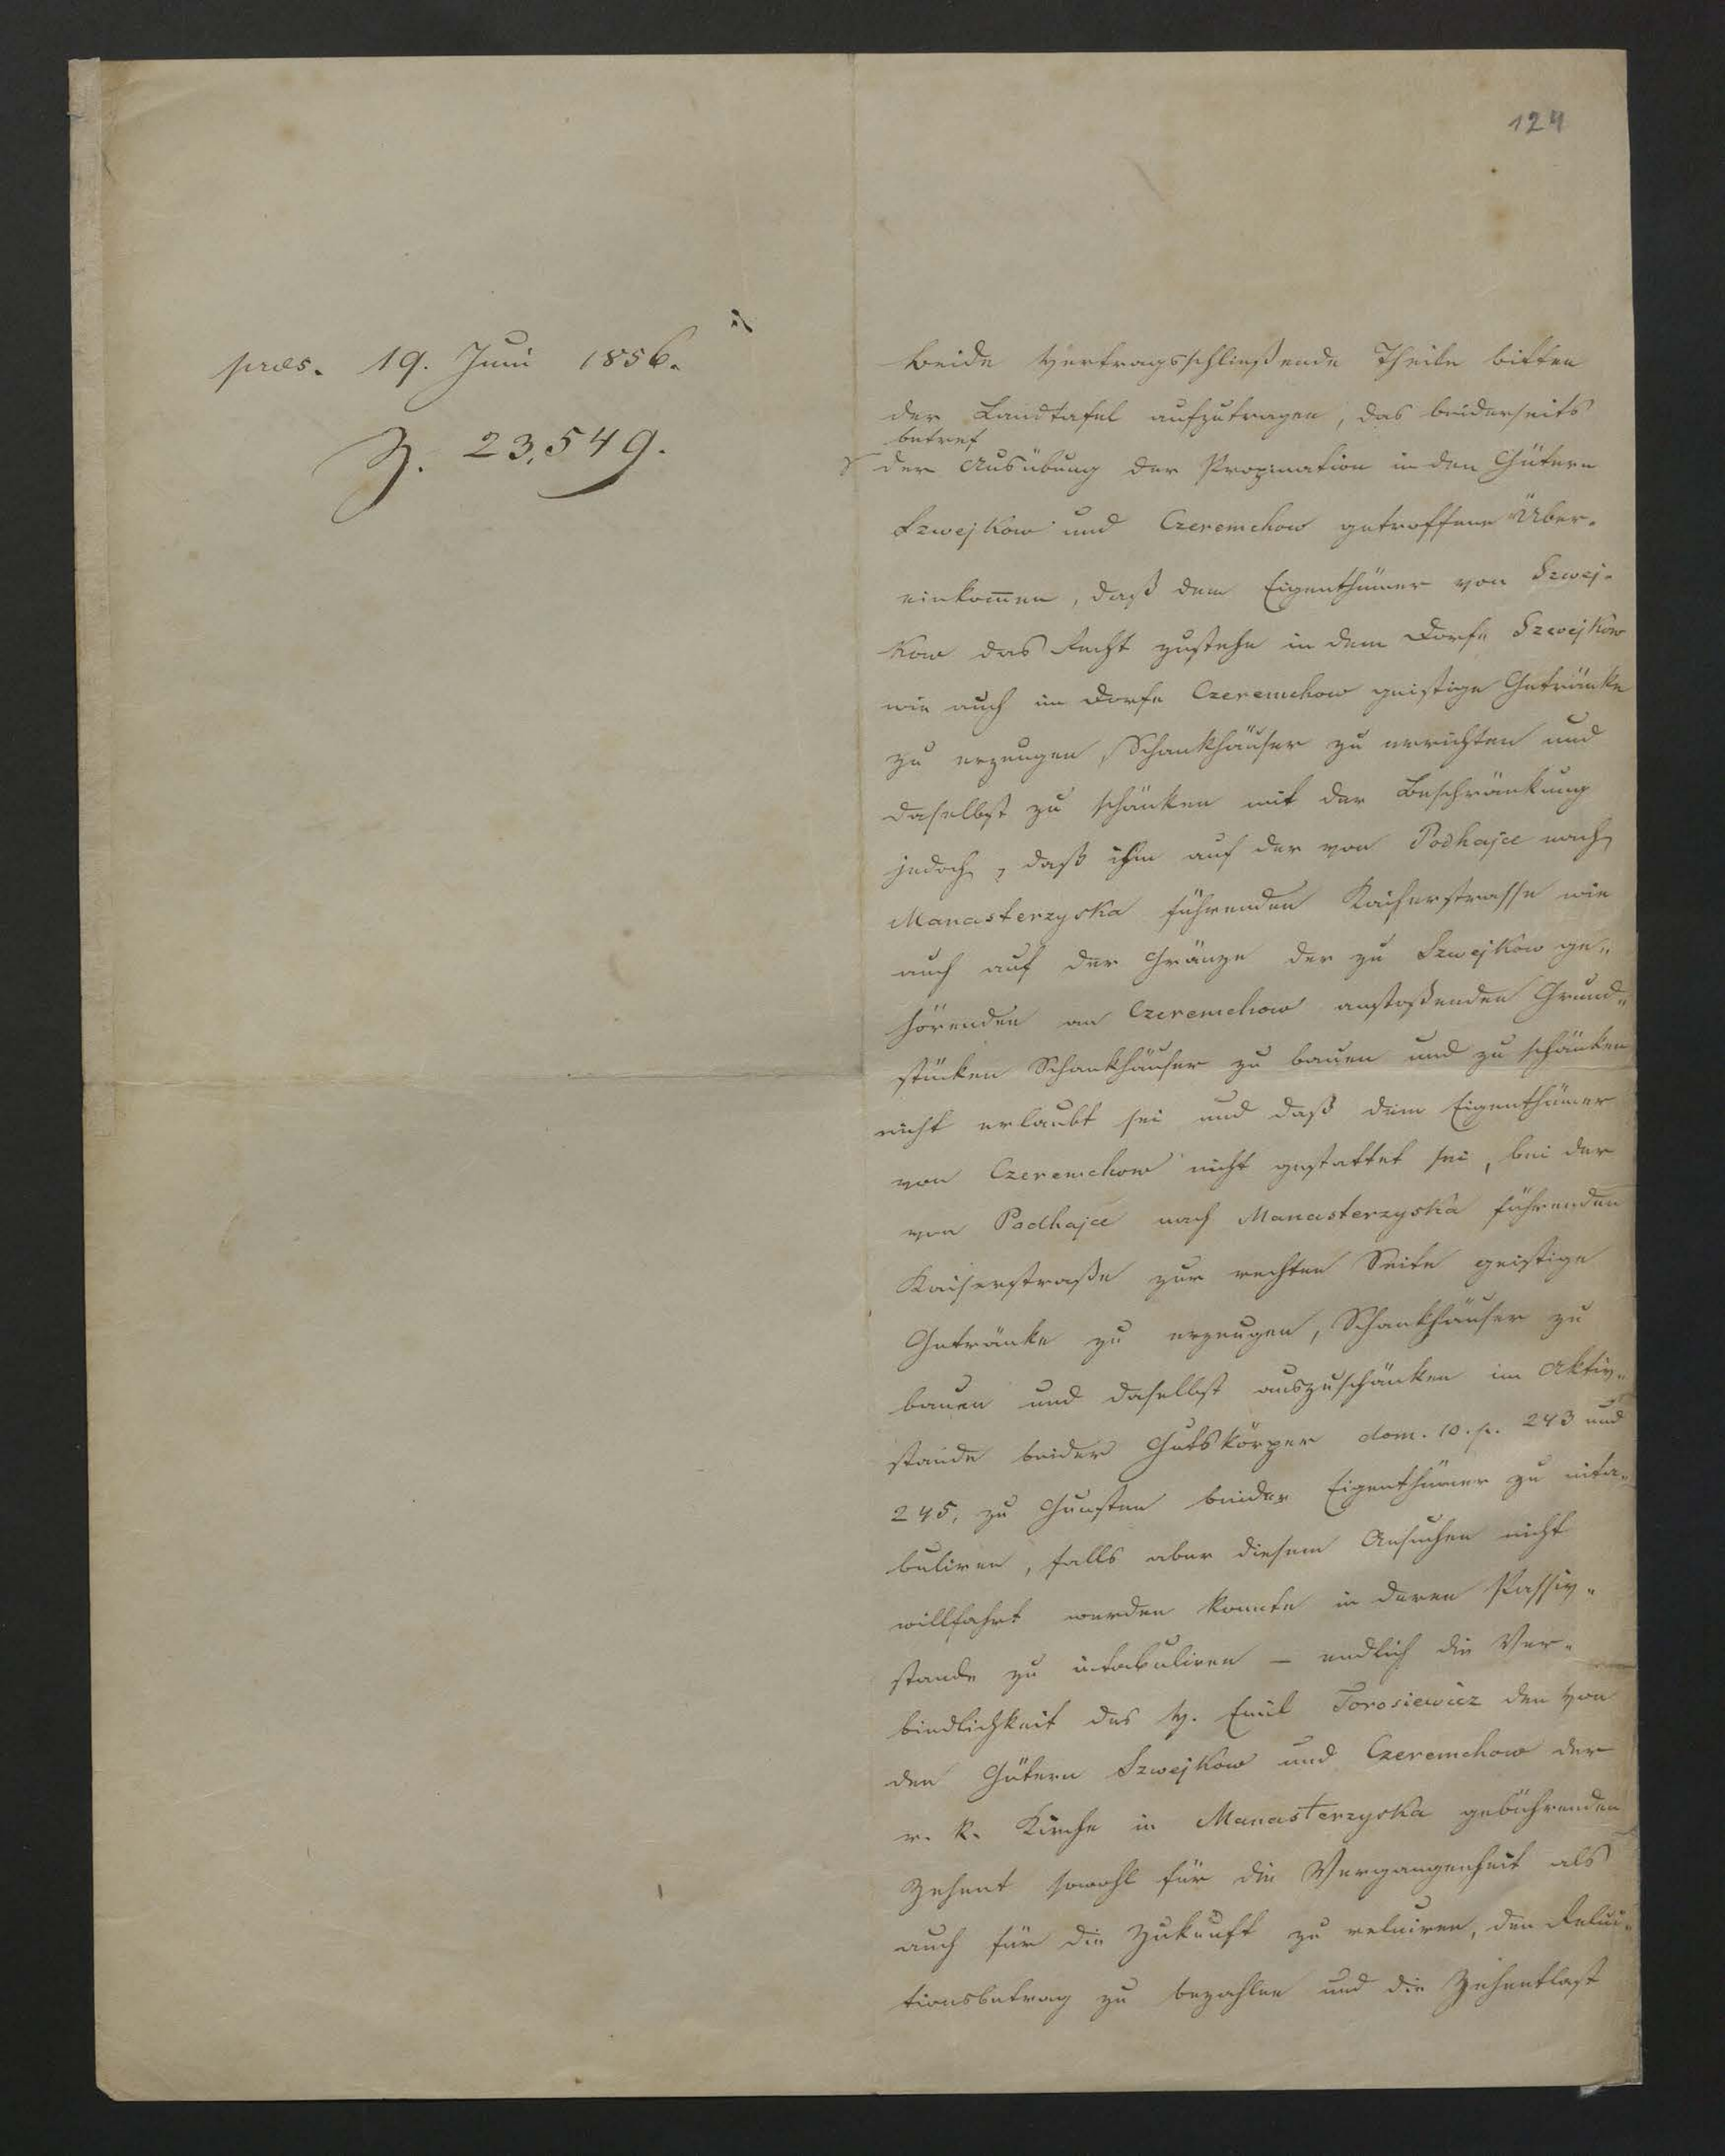 124
præs. 19. Juni 1856.
Z. 23,549.
Beide vertragschließende Theile bitten
der Landtafel aufzutragen, das beiderseits
betref
der Ausübung der Propination in den Gütern
Szwejkow und Czeremchow getroffene Über-
einkom̄en, daß dem Eigenthümer von Szwej-
kow das Recht zustehe in dem Dorfe Szwejkow
wie auch im Dorfe Czeremchow geistige Getränke
zu erzeugen, Schankhäuser zu errichten und
daselbst zu schänken mit der Beschränkung
jedoch, daß ihm auf der von Podhajce nach
Manasterzyska führenden Kaiserstrasse wie
auch auf der Gränze der zu Szwejkow ge-
hörenden an Czeremchow anstoßenden Grund-
stücken Schankhäuser zu bauen und zu schänken
nicht erlaubt sei und daß dem Eigenthümer
von Czeremchow nicht gestattet sei, bei der
von Podhajce nach Manasterzyska führenden
Kaiserstraße zur rechten Seite geistige
Getränke zu erzeugen, Schankhäuser zu
bauen und daselbst auszuschänken im Aktiv-
stande beider Gutskörper dom. 10. p. 243 und
245, zu Gunsten beider Eigenthümer zu inta-
buliren, falls aber diesem Ansuchen nicht
willfahrt werden konnte in deren Passiv-
stande zu intabuliren – endlich die Ver-
bindlichkeit des H. Emil Torosiewicz den von
den Gütern Szwejkow und Czeremchow der
r. k. Kirche in Manasterzyska gebührenden
Zehent sowohl für die Vergangenheit als
auch für die Zukunft zu reluiren, den Relui-
tionsbetrag zu bezahlen und die Zehentlast